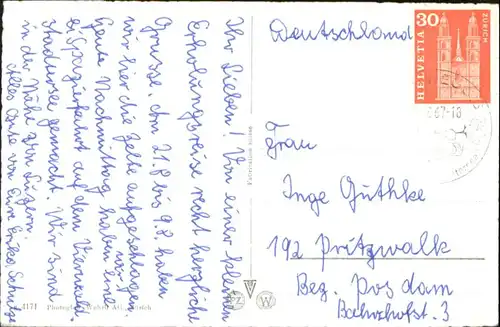 Ihr Lieben! Von einer kleinen
Erholungsreise recht herzliche
Grüsse. Am 21.8 bis 9.8 haben
wir hier die Zelte aufgeschlagen.
Heute Nachmittag haben wir eine
Spazierfahrt auf dem Vierwald-
städersee gemacht. Wir sind
in der Nähe von Luzern.
Alles Gute von Eure Erika Schulze
4171 Photoglob-Wehrli AG, Zürich
Deutschland
Frau
Inge Guthke
192 Pritzwalk
Bez. Posdam
Bahnhofst. 3
30
HELVETIA
ZÜRICH
.67-18
PZ
W